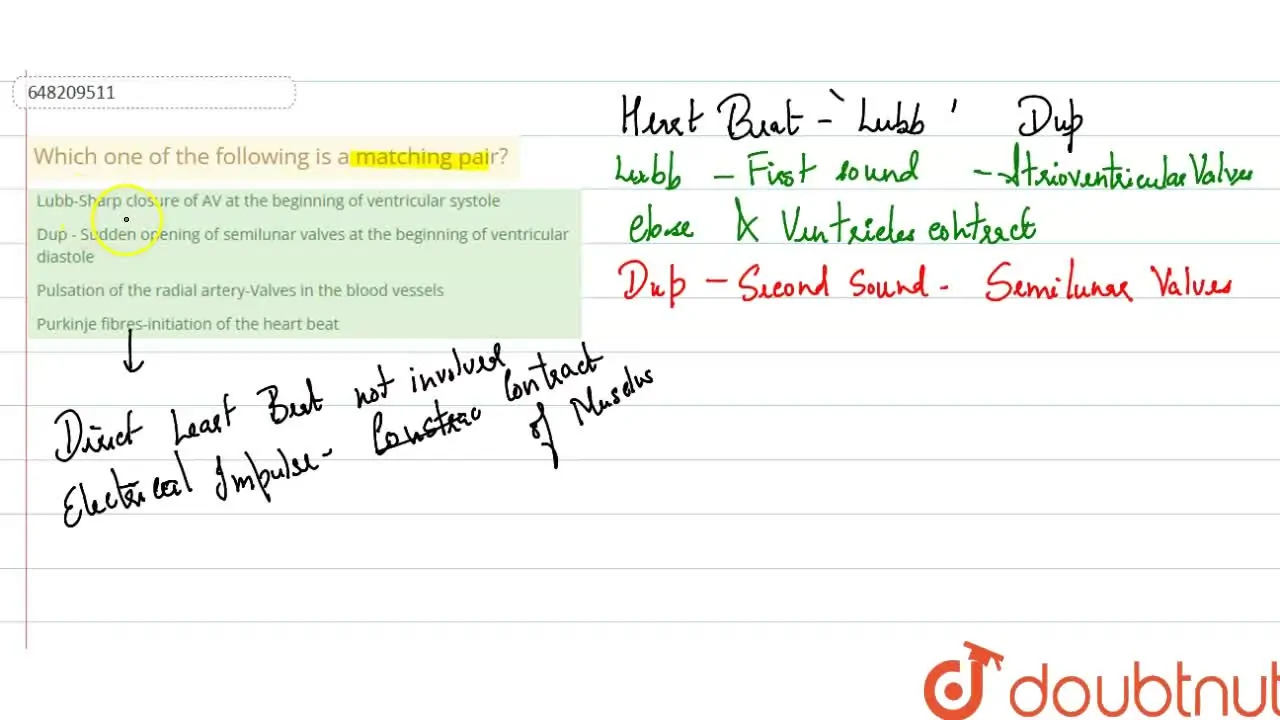 648209511
Which one of the following is a matching pair?
Lubb-Sharp closure of AV at the beginning of ventricular systole
Dup - Sudden opening of semilunar valves at the beginning of ventricular
diastole
Pulsation of the radial artery-Valves in the blood vessels
Purkinje fibres-initiation of the heart beat
Direct Heart Beat not involved
Electrical Impulse - Constrac Contract
of Muscles
Heart Beat - 'Lubb' Dup
Lubb - First sound - Atrioventricular Valves
close & Ventricles contract
Dup - Second Sound - Semilunar Valves
doubtnut